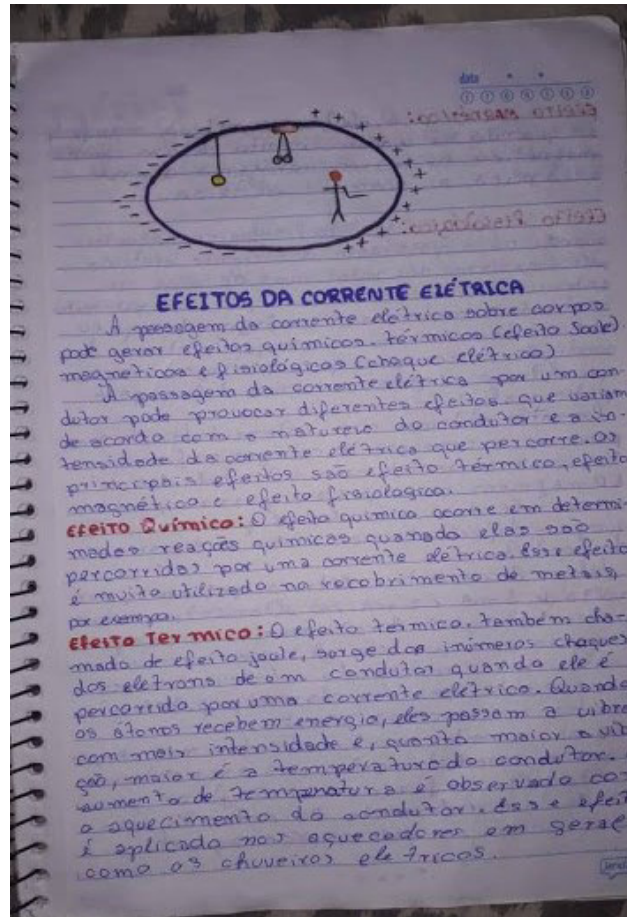 data
EFEITOS DA CORRENTE ELÉTRICA
A passagem da corrente elétrica sobre corpos
pode gerar efeitos químicos, térmicos (efeito Joule)
magnéticos e fisiológicos (choque elétrico)
A passagem da corrente elétrica por um con-
dutor pode provocar diferentes efeitos, que variam
de acordo com a natureza do condutor e a in-
tensidade da corrente elétrica que percorre. Os
principais efeitos são efeito térmico, efeito
magnético e efeito fisiologico.
EFEITO Químico: O efeito químico ocorre em determi
nadas reações químicas quando elas são
percorridas por uma corrente elétrica. Esse efeito
é muito utilizado no recobrimento de metais,
por exemplo.
Efeito Termico: O efeito termico, também cha-
mado de efeito joule, surge dos inúmeros choques
dos eletrons de um condutor quando ele é
percorrido por uma corrente elétrica. Quando
os átomos recebem energia, eles passam a vibra
com mais intensidade e, quanto maior a vib
ção, maior é a temperatura do condutor.
aumento de temperatura é observado co
o aquecimento do condutor. Esse efeit
é aplicado nos aquecedores em geral
como os chuveiros eletricos.